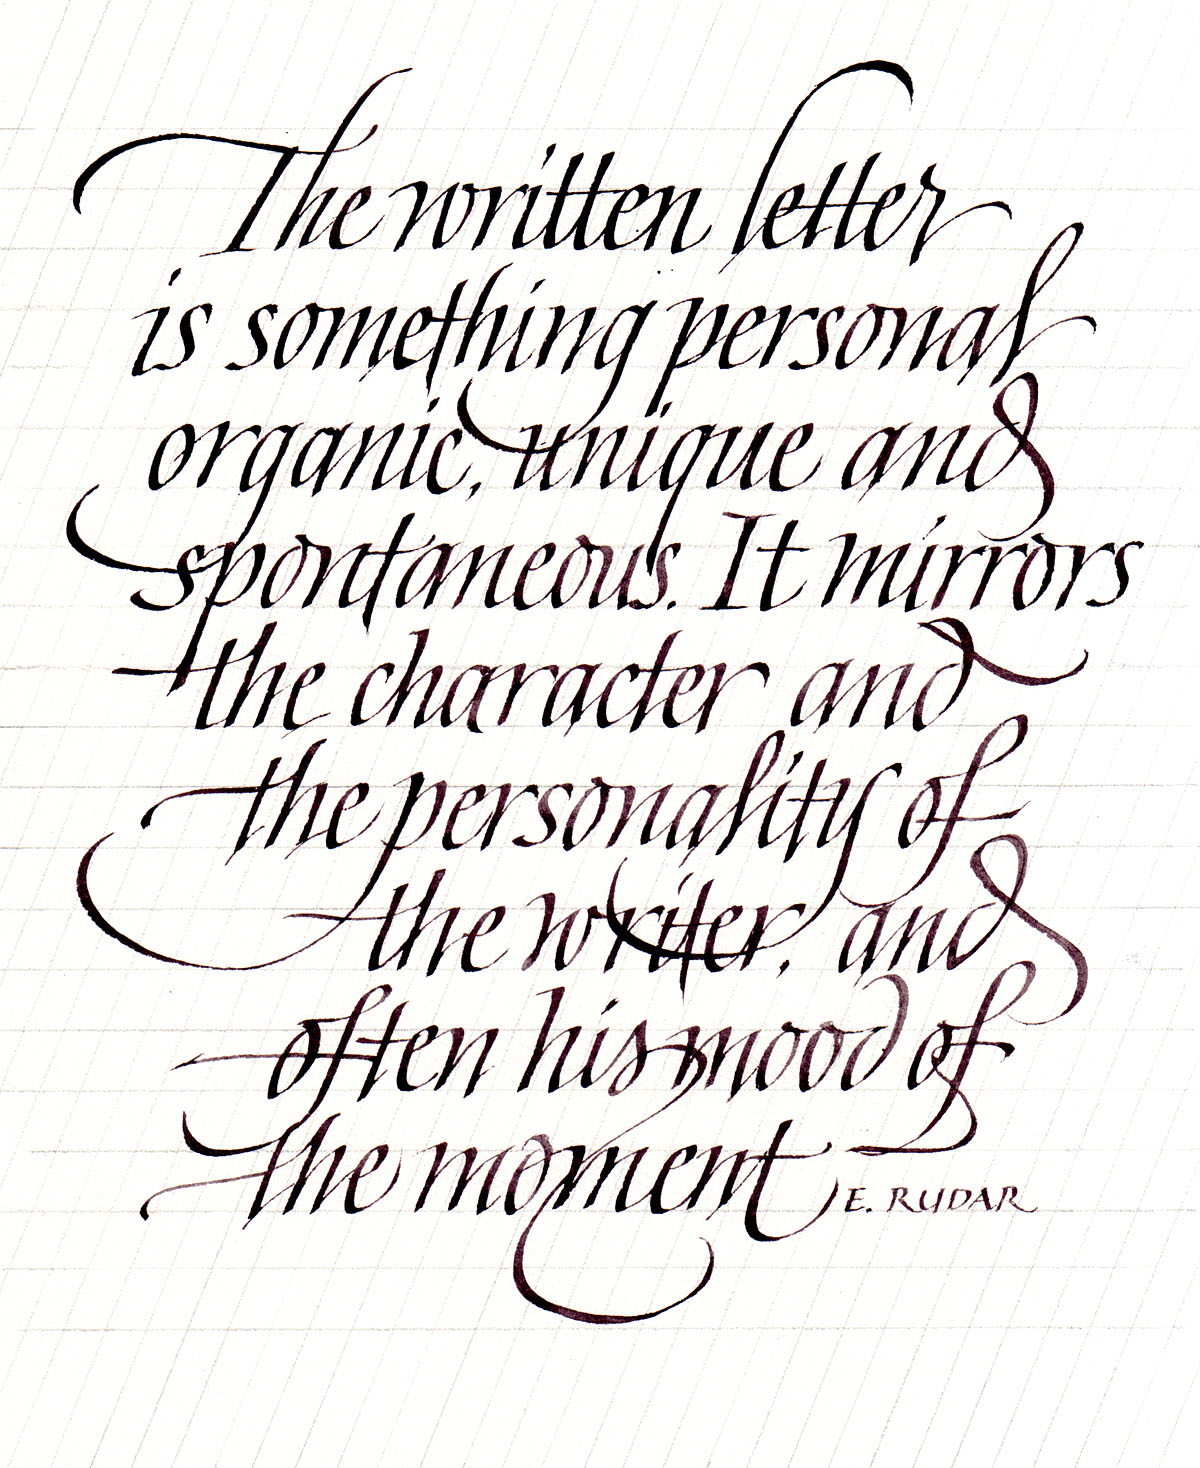 The written letter
is something personal
organic, unique and
spontaneous. It mirrors
the character and
the personality of
the writer, and
often his mood of
the moment
E. RUDAR